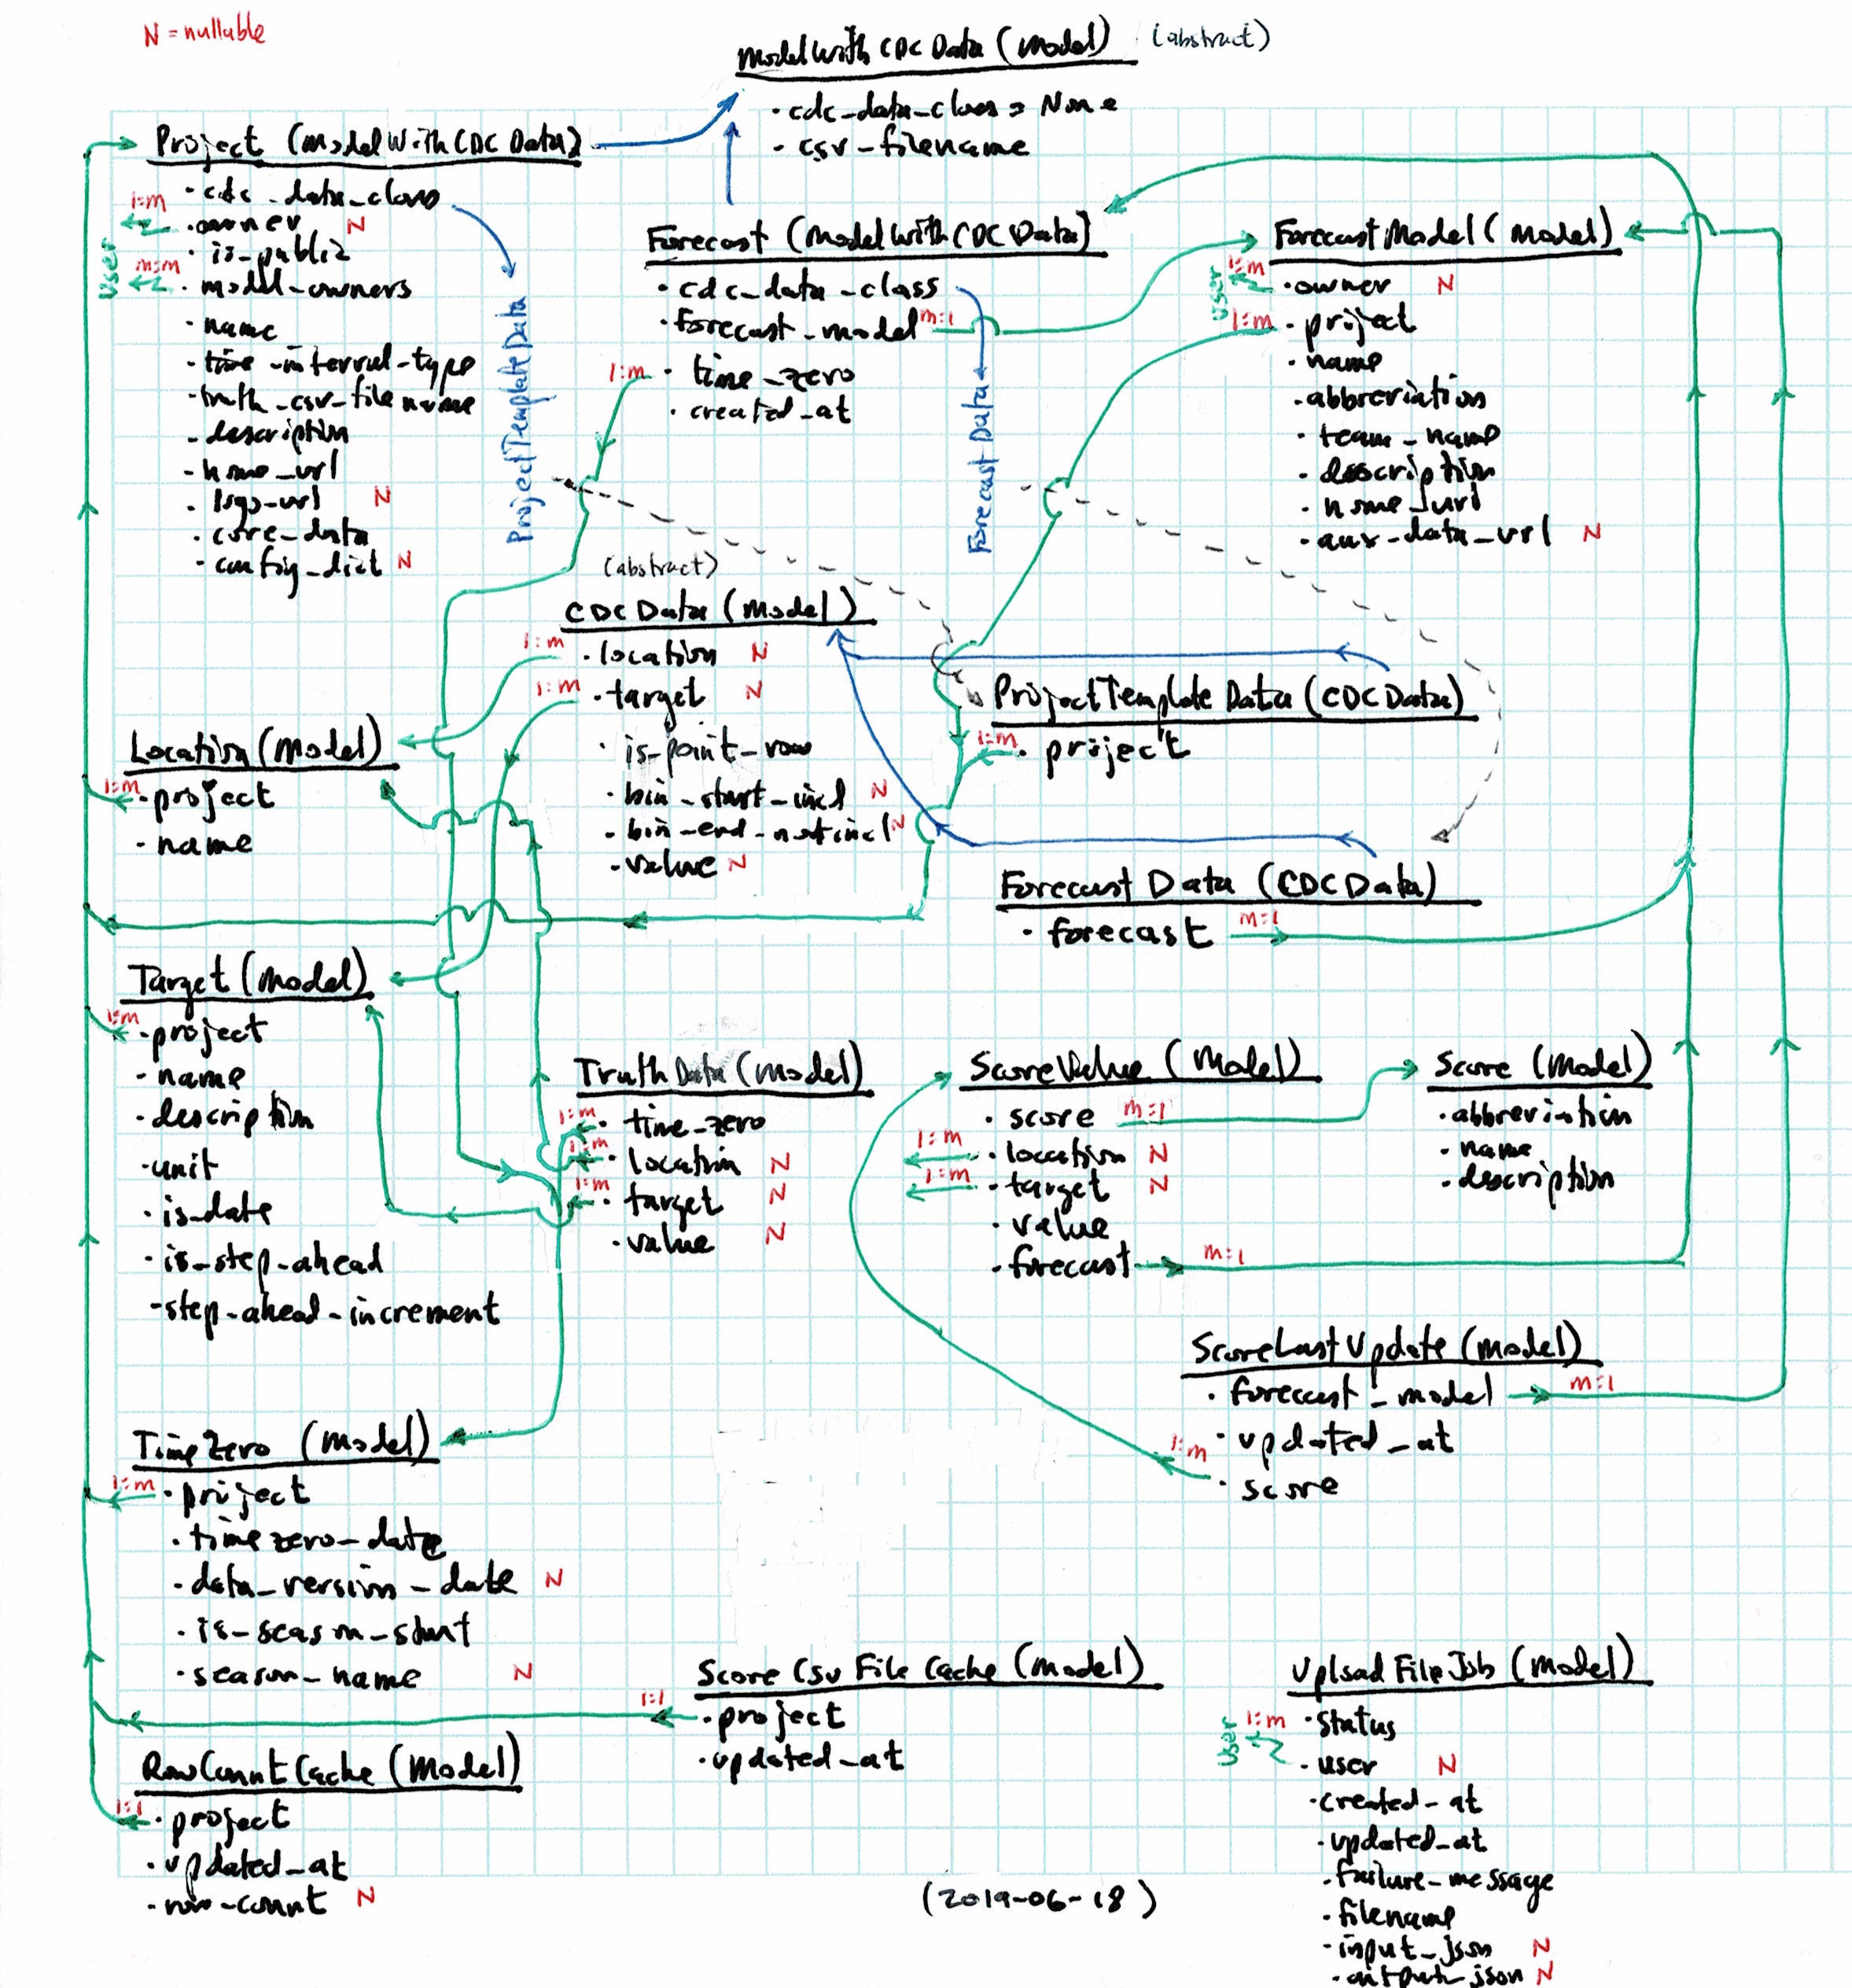 N = nullable
ModelWithCDCData (Model) (abstract)
· cdc_data_class = None
· csv_filename
Project (ModelWithCDCData)
· cdc_data_class
1:m · owner N
· is_public
User
m:m · model_owners
· name
· time_interval_type
· truth_csv_filename
· description
· home_url
· logo_url N
· core_data
· config_dict N
ProjectTemplateData
Forecast (ModelWithCDCData)
· cdc_data_class
· forecast_model m:1
1:m · time_zero
· created_at
Forecast Data
ForecastModel (Model)
User
1:m · owner N
1:m · project
· name
· abbreviation
· team_name
· description
· home_url
· aux_data_url N
(abstract)
CDCData (Model)
1:m · location N
1:m · target N
· is_point_row
· bin_start_incl N
· bin_end_notincl N
· value N
ProjectTemplateData (CDCData)
1:m · project
Forecast Data (CDCData)
· forecast m:1
Location (Model)
1:m · project
· name
Target (Model)
1:m · project
· name
· description
· unit
· is_date
· is_step_ahead
· step_ahead_increment
TruthData (Model)
1:m · time_zero
1:m · location N
1:m · target N
· value N
ScoreValue (Model)
· score m:1
1:m · location N
1:m · target N
· value
· forecast m:1
Score (Model)
· abbreviation
· name
· description
ScoreLastUpdate (Model)
· forecast_model m:1
· updated_at
1:m · score
TimeZero (Model)
1:m · project
· timezero_date
· data_version_date N
· is_season_start
· season_name N
Score Csv File Cache (Model)
1:1 · project
· updated_at
RowCountCache (Model)
1:1 · project
· updated_at
· row_count N
UploadFileJob (Model)
· status
User 1:m
· user N
· created_at
· updated_at
· failure_message
· filename
· input_json N
· output_json N
(2019-06-18)